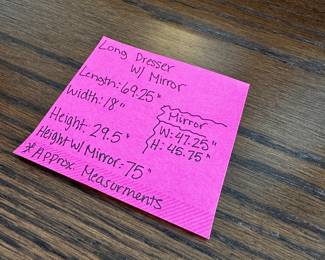 Long Dresser
W/ Mirror
Length: 69.25"
Width: 18"
Height: 29.5"
Height W/ Mirror: 75"
*Approx. Measurments
Mirror
W: 47.25"
H: 45.75"